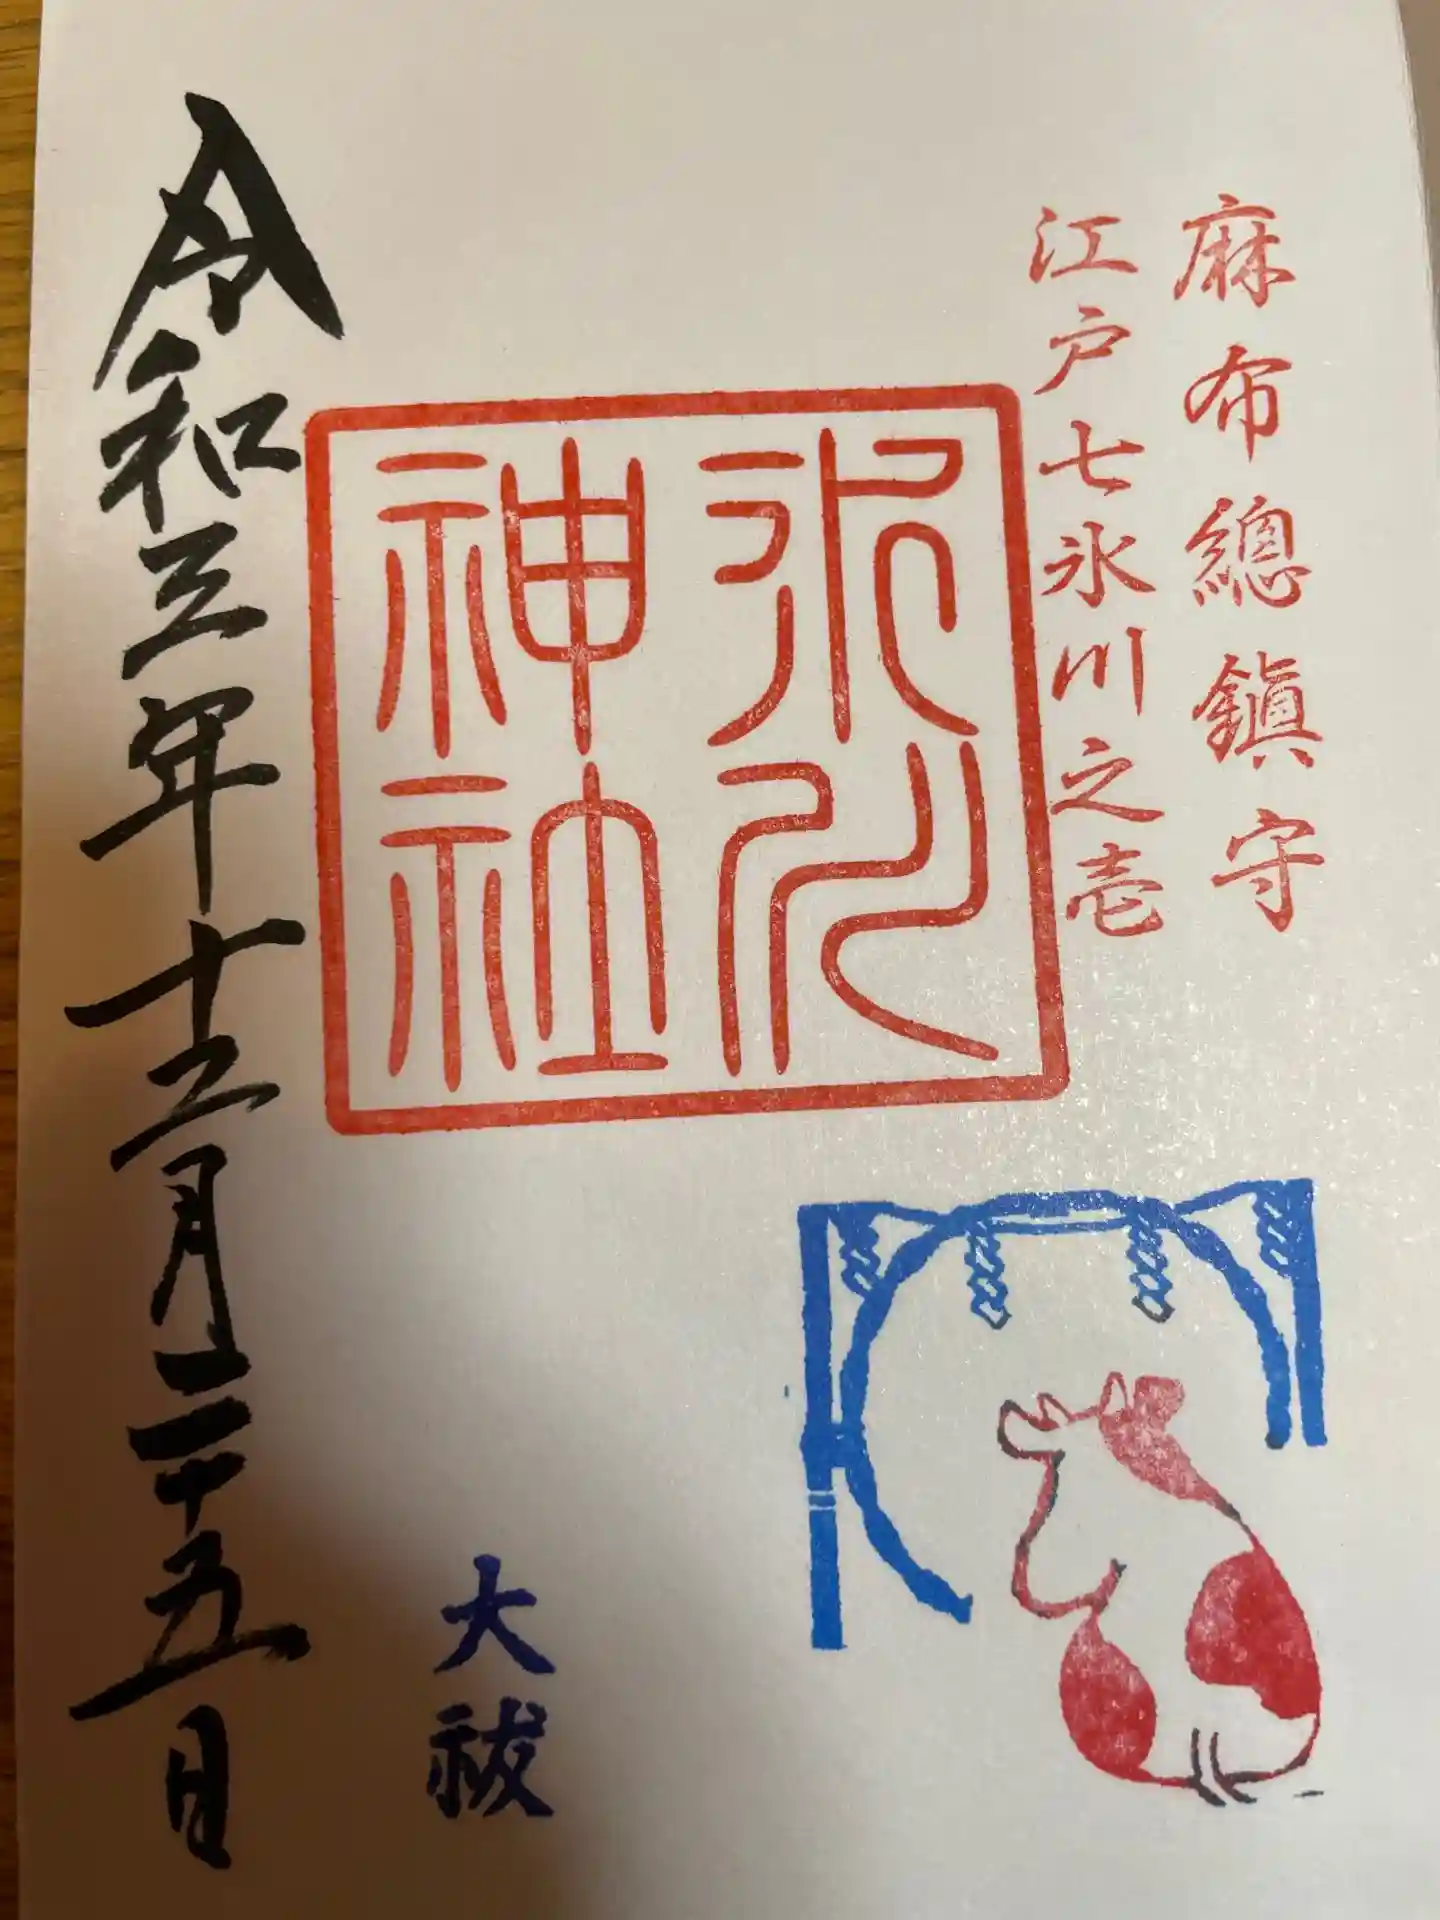 麻布總鎭守
江戸七氷川之壱
氷川
神社
大祓
令和三年十二月二十五日